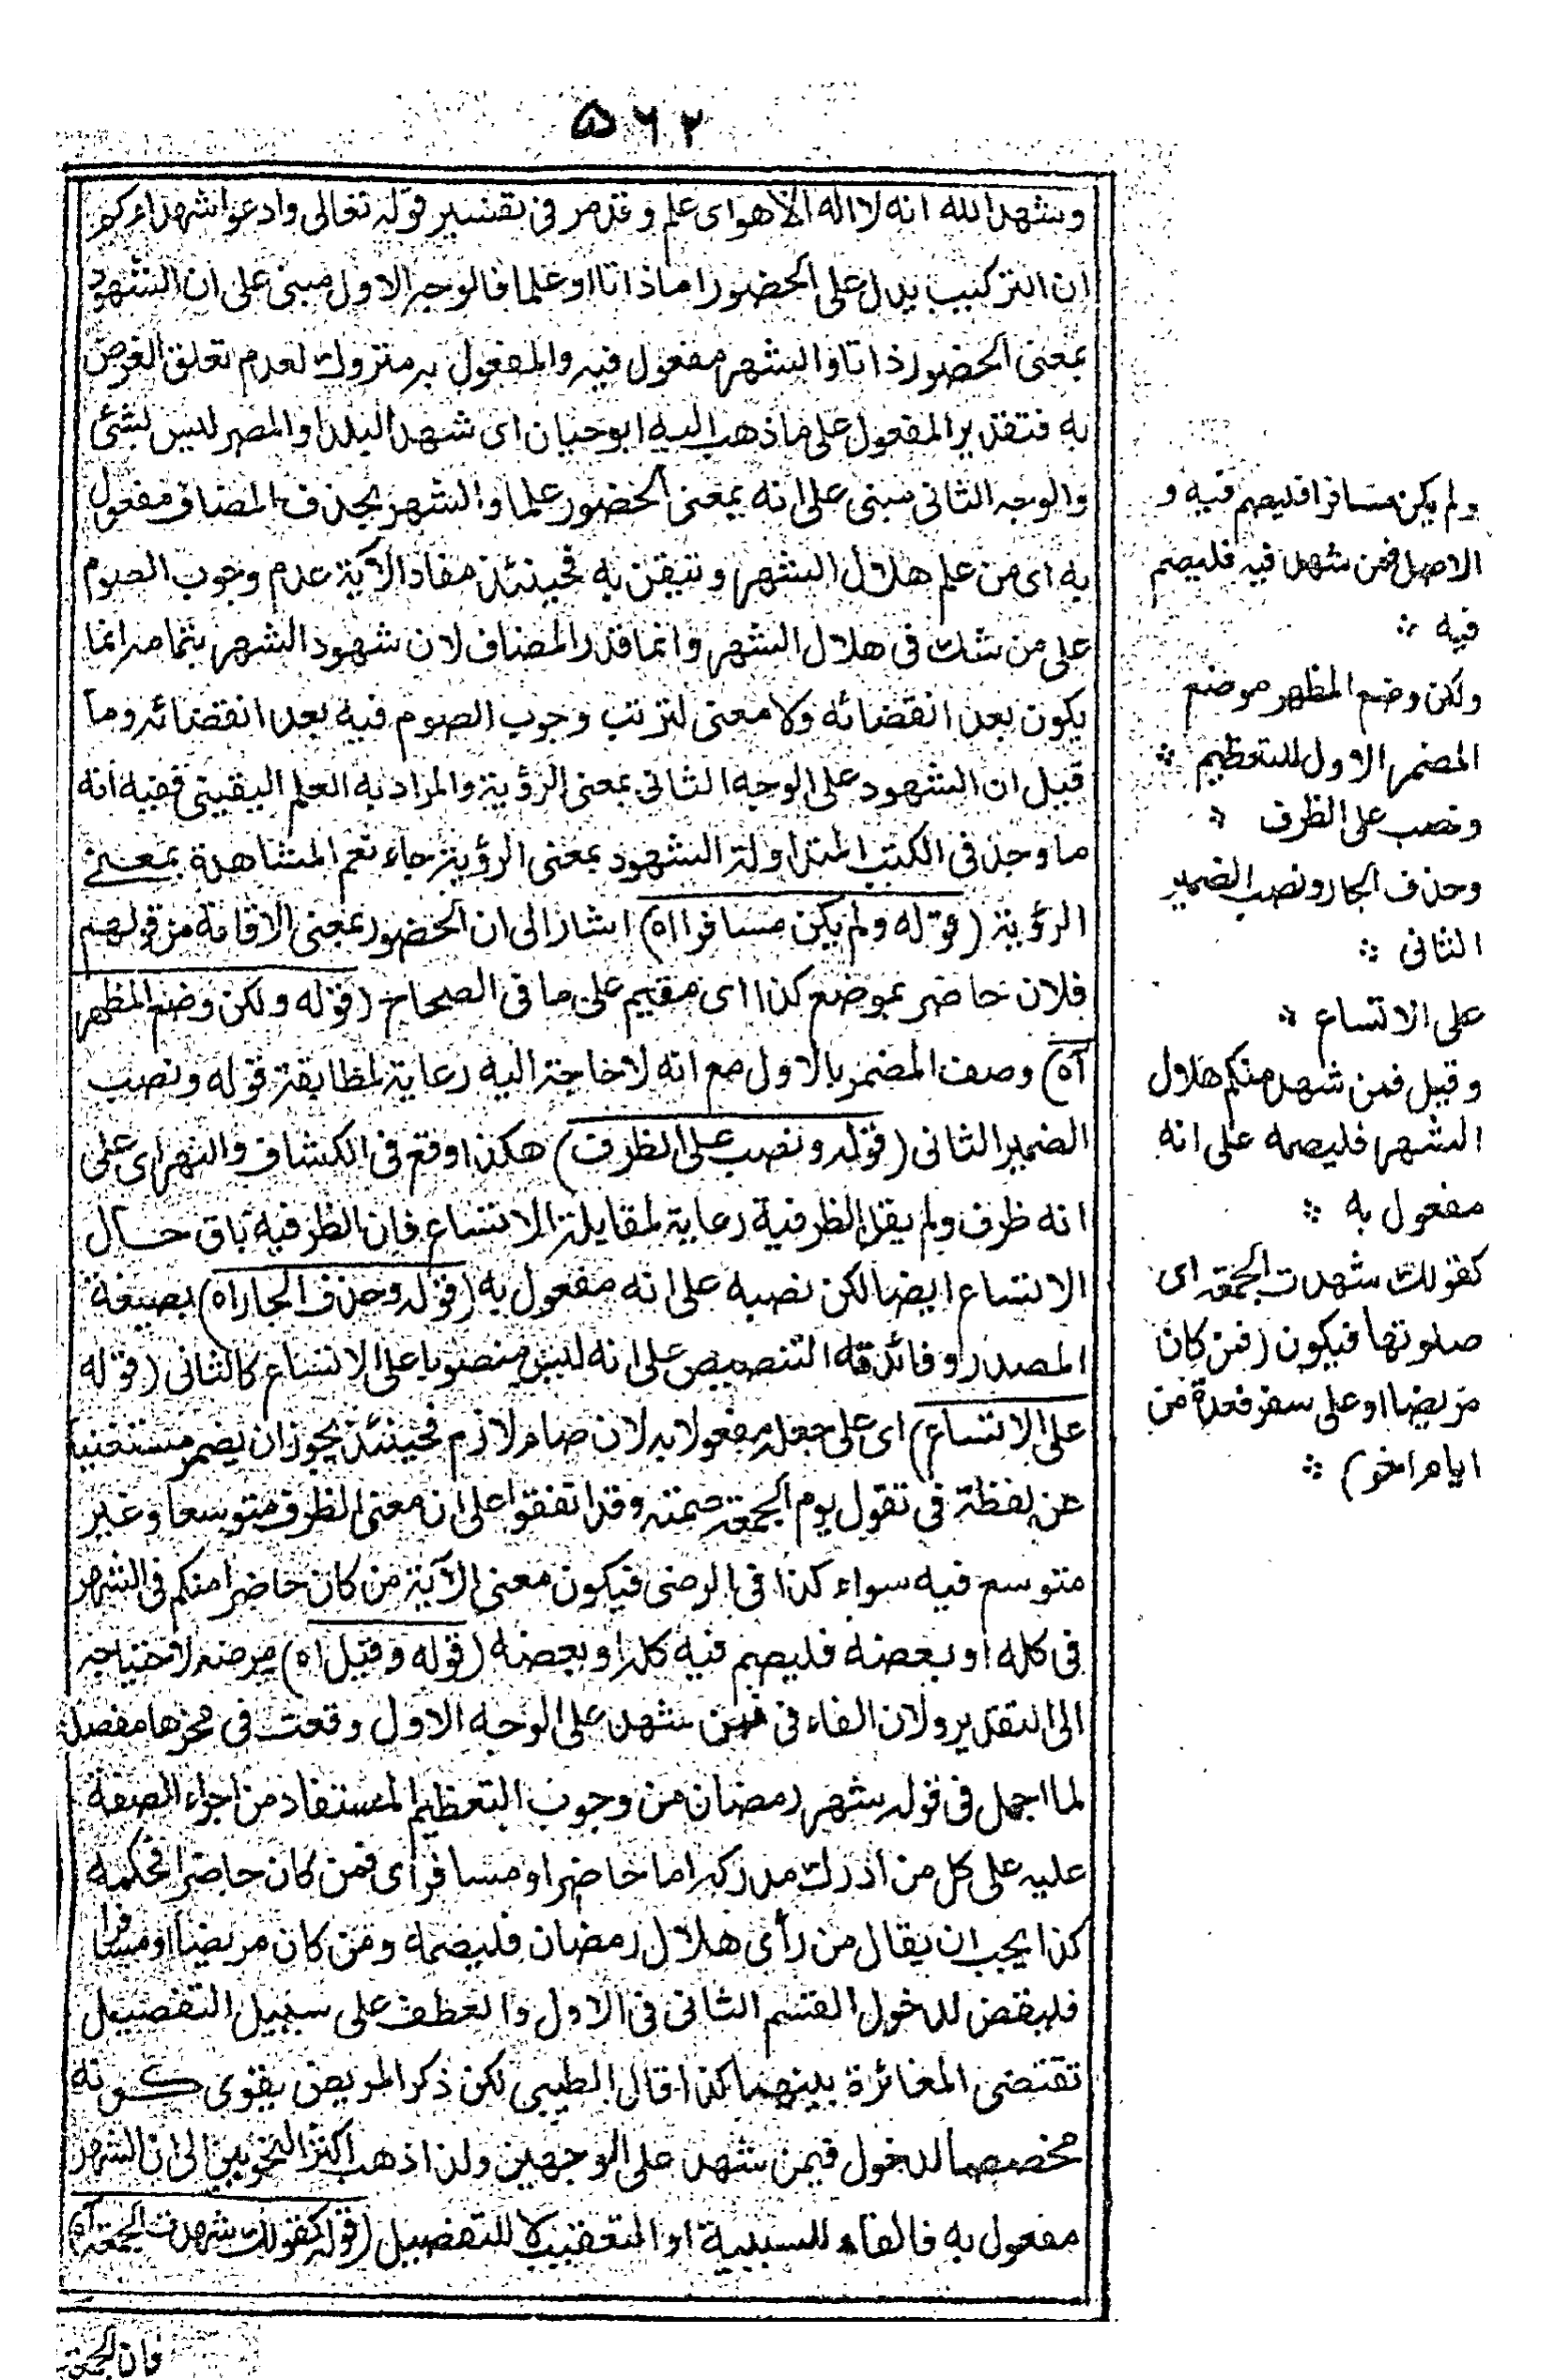 ۵۶۲
وشهد الله انه لا اله الا هو اى علم وقد مر فى تفسير قوله تعالى وادعوا شهداءكم
ان التركيب يدل على الحضور اما ذاتا او علما فالوجه الاول مبنى على ان الشهود
بمعنى الحضور ذاتا والشهر مفعول فيه والمفعول به متروك لعدم تعلق الغرض
به فتقدير المفعول على ما ذهب اليه ابو حيان اى شهد البلد او المصر ليس بشئ
والوجه الثانى مبنى على انه بمعنى الحضور علما والشهر بحذف المضاف مفعول
به اى من علم هلال الشهر وتيقن به فحينئذ مفاد الآية عدم وجوب الصوم
على من شك فى هلال الشهر وانما قدر المضاف لان شهود الشهر بتمامه انما
يكون بعد انقضائه ولا معنى لترتب وجوب الصوم فيه بعد انقضائه وما
قيل ان الشهود على الوجه الثانى بمعنى الرؤية والمراد به العلم اليقينى ففيه انه
ما وجد فى الكتب المتداولة الشهود بمعنى الرؤية جاء نعم المشاهدة بمعنى
الرؤية (قوله ولم يكن مسافرا اه) اشار الى ان الحضور بمعنى الاقامة من قولهم
فلان حاضر بموضع كذا اى مقيم على ما فى الصحاح (قوله ولكن وضع المظهر
آه) وصف المضمر بالاول مع انه لا حاجة اليه رعاية لمطابقة قوله ونصب
الضمير الثانى (قوله ونصب على الظرف) هكذا وقع فى الكشاف والنهر اى على
انه ظرف ولم يقل الظرفية رعاية لمقابلة الاتساع فان الظرفية باق حال
الاتساع ايضا لكن نصبه على انه مفعول به (قوله وحذف الجار اه) بصيغة
المصدر وفائدته التنصيص على انه ليس منصوبا على الاتساع كالثانى (قوله
على الاتساع) اى على جعله مفعولا به لان صام لازم فحينئذ يجوز ان يضمر مستغنيا
عن لفظة فى تقول يوم الجمعة صمته وقد اتفقوا على ان معنى الظرف متوسعا وغير
متوسع فيه سواء كذا فى الرضى فيكون معنى الآية من كان حاضرا منكم فى الشهر
فى كله او بعضه فليصم فيه كله او بعضه (قوله وقيل اه) مرضه لاحتياجه
الى التقدير ولان الفاء فى فمن شهد على الوجه الاول وقعت فى محزها مفصلة
لما اجمل فى قوله شهر رمضان من وجوب التعظيم المستفاد من اجراء الصفة
عليه على كل من ادرك مدركه اما حاضر او مسافر اى فمن كان حاضرا فحكمه
كذا يجب ان يقال من رأى هلال رمضان فليصمه ومن كان مريضا او مسافرا
فليقض لدخول القسم الثانى فى الاول والعطف على سبيل التفصيل
تقتضى المغائرة بينهما كذا قال الطيبى لكن ذكر المريض يقوى كونه
مخصصا لدخول فيمن شهد على الوجهين ولذا ذهب اكثر النحويين الى ان الشهر
مفعول به فالفاء للسببية او التعقيب لا للتفصيل (قوله كقولك شهدت الجمعة آه)
فان الجمعة
ولم يكن مسافرا فليصم فيه و
الاصل فمن شهد فيه فليصم
فيه ⁘
ولكن وضع المظهر موضع
المضمر الاول للتعظيم ⁘
ونصب على الظرف ⁘
وحذف الجار ونصب الضمير
الثانى ⁘
على الاتساع ⁘
وقيل فمن شهد منكم هلال
الشهر فليصمه على انه
مفعول به ⁘
كقولك شهدت الجمعة اى
صلوتها فيكون (فمن كان
مريضا او على سفر فعدة من
ايام اخر) ⁘